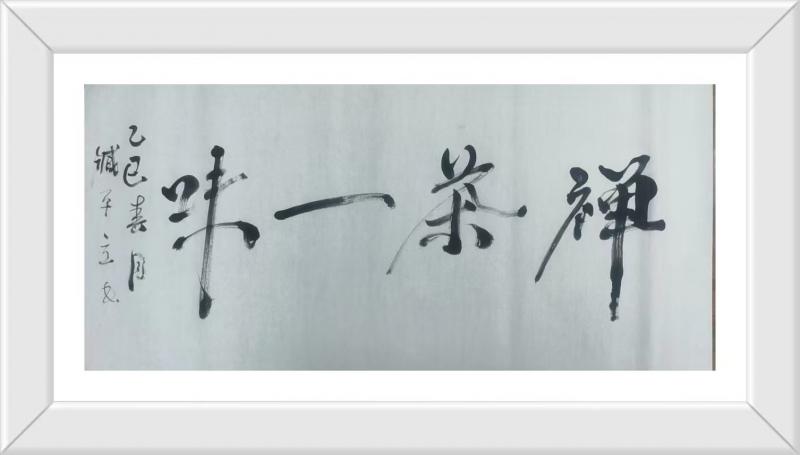 禅茶一味
乙巳春月